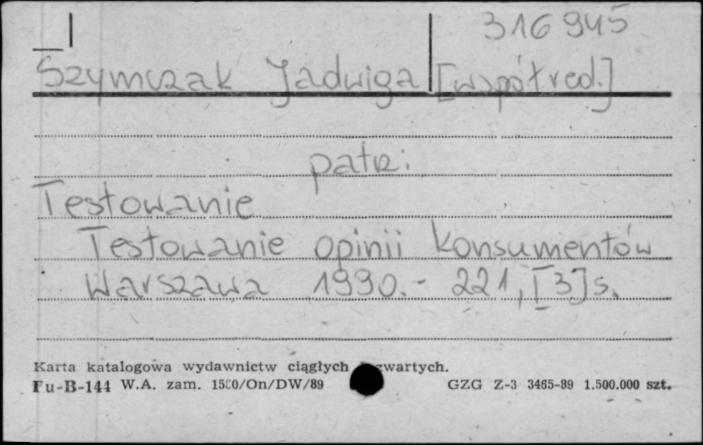 316945
Szymczak Jadwiga [współred.]
patrz:
Testowanie
Testowanie opinii konsumentów
Warszawa 1990.- 221, [3] s.
Karta katalogowa wydawnictw ciągłych zwartych.
Pu-B-144 W.A. zam. 1500/On/DW/89 GZG Z-3 3465-89 1.500.000 szt.